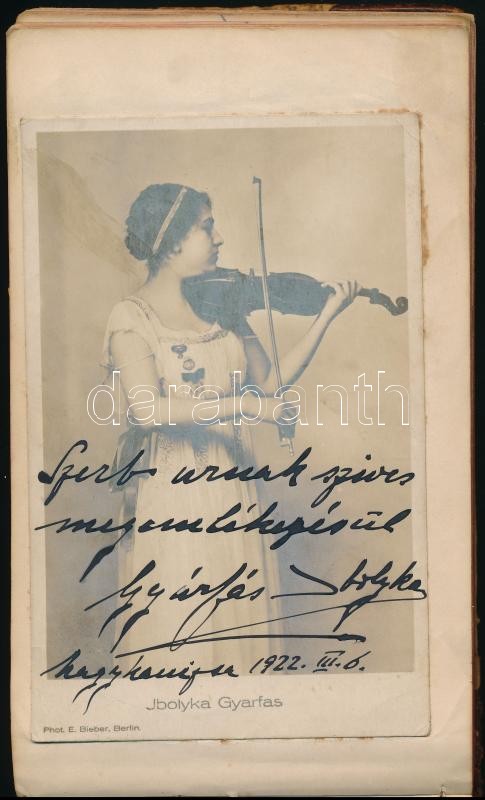 darabanth
Szerb urnak szives
megemlékezésül
Gyárfás Ibolyka
Nagykanizsa 1922. III. 6.
Jbolyka Gyarfas
Phot. E. Bieber, Berlin.